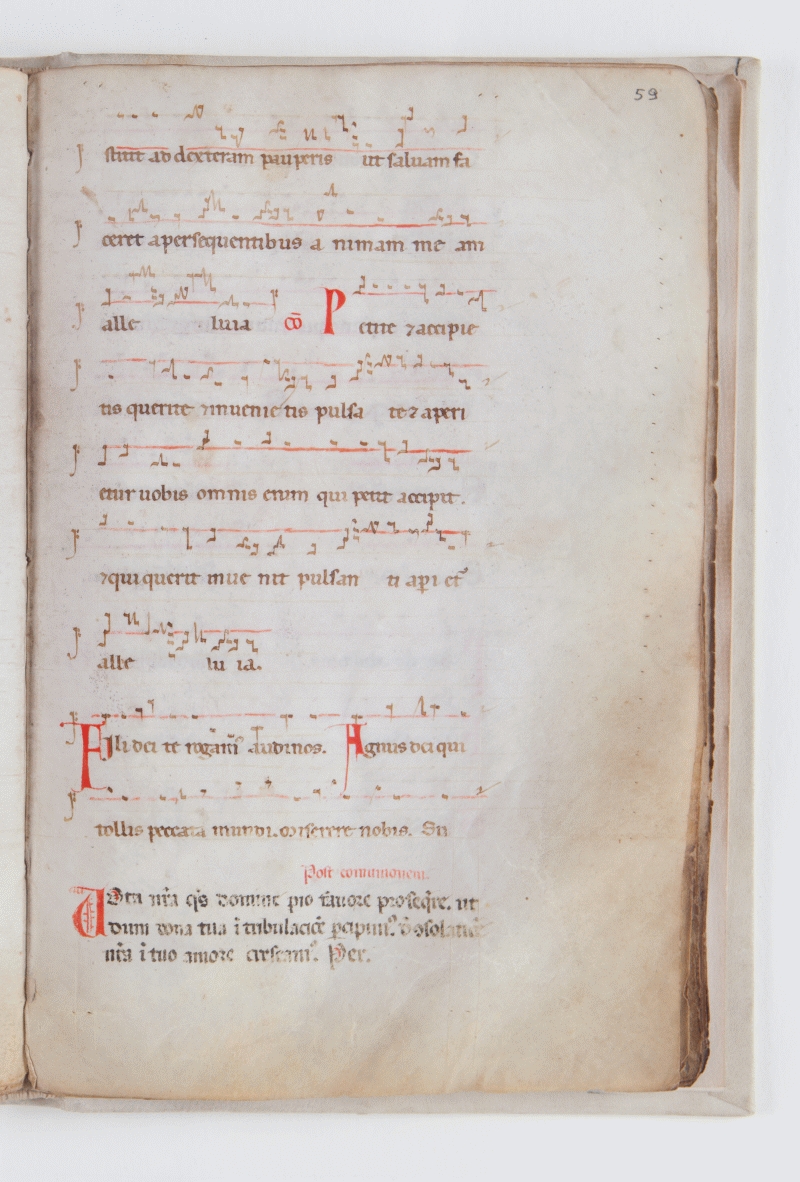 59
stitit ad dexteram pauperis ut saluam fa
ceret apersequentibus a nimam me am
alle luia cō Petite ⁊accipie
tis querite ⁊inuenie tis pulsa te⁊ aperi
etur uobis omnis enim qui petit accipit.
⁊qui querit inue nit pulsan ti api et᷑
alle lu ia.
Fili dei te rogam᷒ audi nos. Agnus dei qui
tollis peccata mundi. miserere nobis. Sn
Post communionem.
Uota nr̄a qs̄ domine pio fauore proseq̄re. ut
dum dona tua ī tribulacōe
nr̄a ī tuo amore crescam᷒. Per.